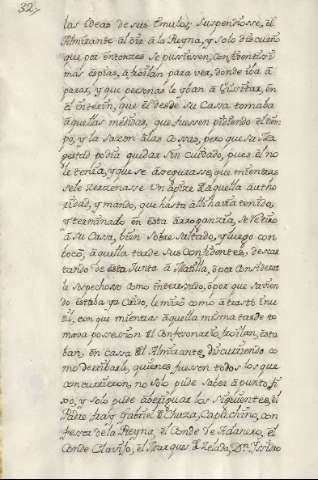 32
las ideas de sus Emulos; suspendiosse, el
Almirante al oir â la Reyna, y solo discurrio
que por entonzes se pussiesen, confidentes i
mas espias, â Froilan para ver, donde iba â
parar, y que personas le yban â Visitar, en
el interin, que el desde su Cassa tomaba
aquellas medidas, que fuessen pidiendo el tiem
po, y la sazon â las cosas, pero que su Ma
gestad podia quedar sin cuidado, pues el no
le tenia, y que se asegurasse, que mientras
se le zerzenase un apize de aquella autho
ridad, y mando, que hasta alli havia tenido,
y terminado en esta arroganzia, se retiro
â su Cassa, bien sobresaltado, y luego con
boco, â aquella tarde sus Confidentes, de
esta Junta â Matilla, ô por considerar
le sospechoso como interesado, ô por que savien
do estaba ya caido, le miró como â trasto inu
til, con que mientras aquella misma tarde to
maba possession del Confesonario, froilan, esta
ban, en cassa del Almirante, discurriendo co
mo derribarle, quienes fuesen todos los que
concurrieron, no solo pude saber â punto fi
xo, y solo pude averiguar los siguientes, el
Padre fray Gabriel de Chiusa, Capuchino, con
fessor de la Reyna, el Conde de Adanero, el
Conde Clavijo, el Marques de Zelada, Dn.